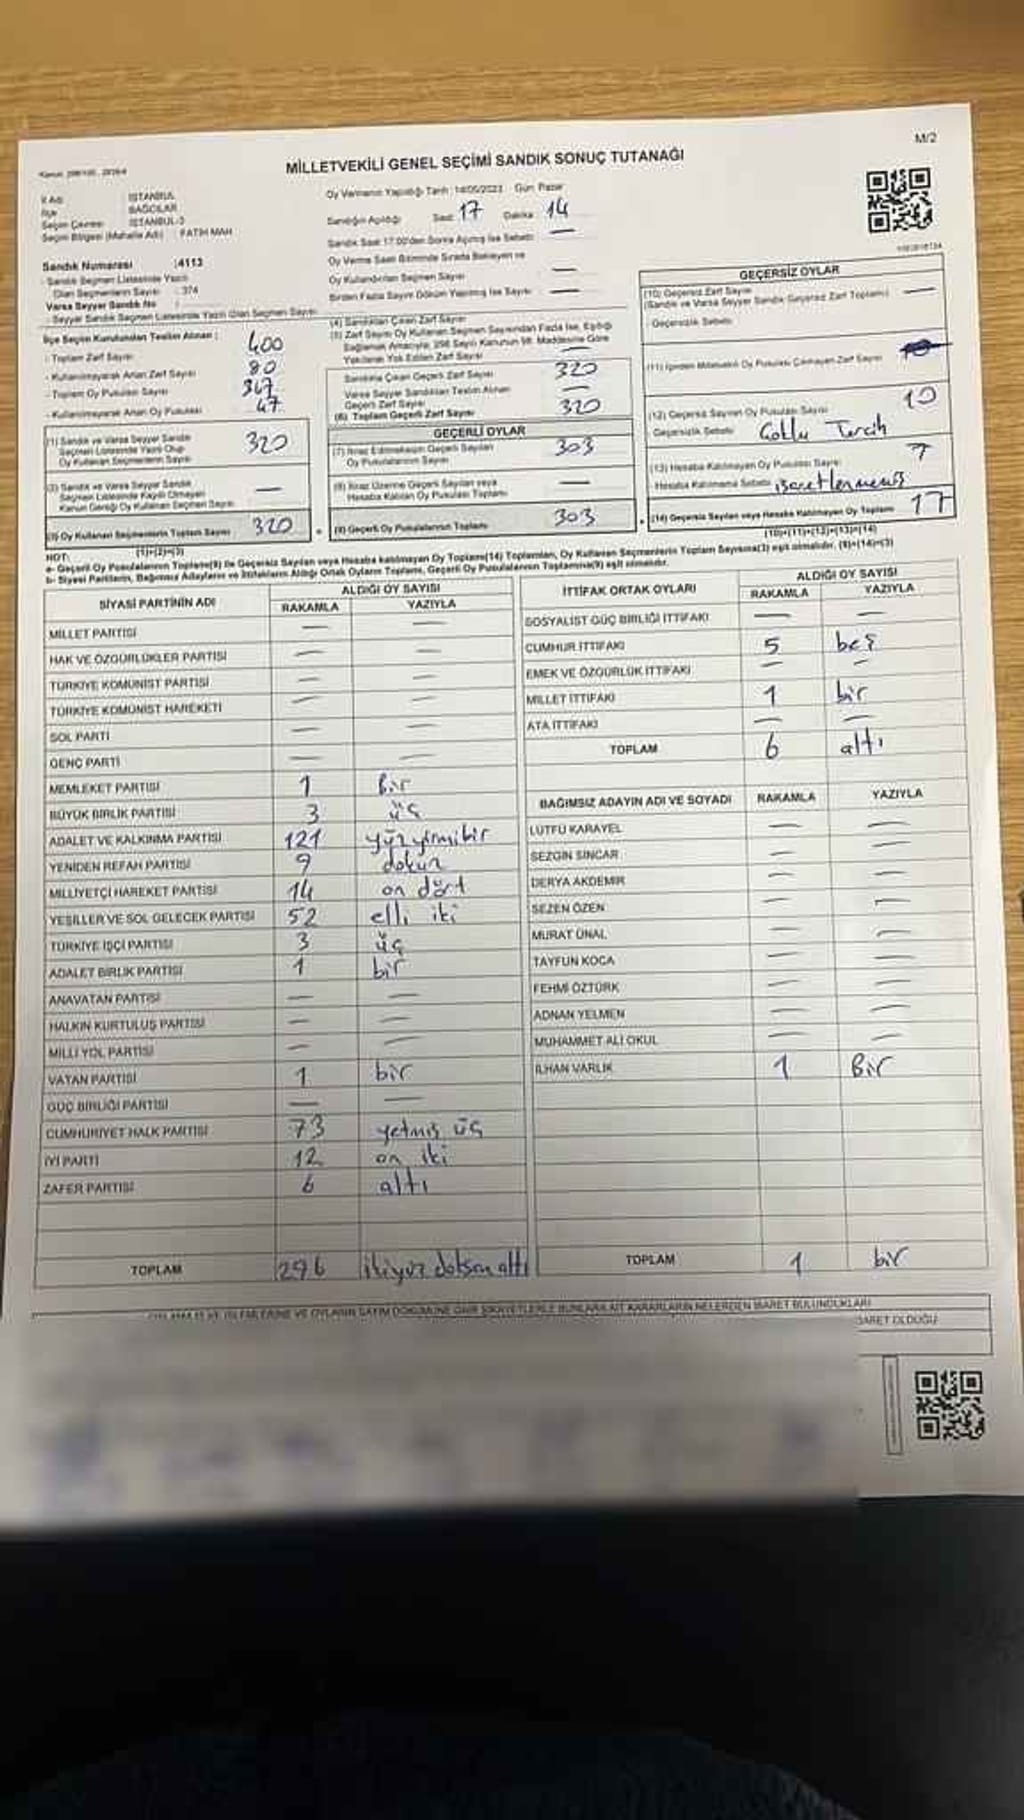 M/2
MİLLETVEKİLİ GENEL SEÇİMİ SANDIK SONUÇ TUTANAĞI
İl Adı : İSTANBUL
İlçe : BAĞCILAR
Seçim Çevresi : İSTANBUL-3
Seçim Bölgesi (Mahalle Adı) : FATİH MAH
Sandık Numarası :4113
Sandık Seçmen Listesinde Yazılı
Olan Seçmenlerin Sayısı : 374
Varsa Seyyar Sandık No :
Seyyar Sandık Seçmen Listesinde Yazılı Olan Seçmen Sayısı
Oy Vermenin Yapıldığı Tarih : 14/05/2023 Gün: Pazar
Sandığın Açıldığı Saat 17 Dakika 14
Sandık Saat 17:00'den Sonra Açılmış İse Sebebi —
Oy Verme Saati Bitiminde Sırada Bekleyen ve
Oy Kullandırılan Seçmen Sayısı —
Birden Fazla Sayım Döküm Yapılmış İse Sayısı —
İlçe Seçim Kurulundan Teslim Alınan :
- Toplam Zarf Sayısı 400
- Kullanılmayarak Artan Zarf Sayısı 80
- Toplam Oy Pusulası Sayısı 367
- Kullanılmayarak Artan Oy Pusulası 47
(1) Sandık ve Varsa Seyyar Sandık
Seçmen Listesinde Yazılı Olup
Oy Kullanan Seçmenlerin Sayısı 320
(2) Sandık ve Varsa Seyyar Sandık
Seçmen Listesinde Kayıtlı Olmayan
Kanun Gereği Oy Kullanan Seçmen Sayısı —
(3) Oy Kullanan Seçmenlerin Toplam Sayısı 320
(1)+(2)=(3)
(4) Sandıktan Çıkan Zarf Sayısı
(5) Zarf Sayısı Oy Kullanan Seçmen Sayısından Fazla İse, Eşitliği
Sağlamak Amacıyla, 298 Sayılı Kanunun 98. Maddesine Göre
Yakılarak Yok Edilen Zarf Sayısı —
Sandıkta Çıkan Geçerli Zarf Sayısı 320
Varsa Seyyar Sandıktan Teslim Alınan
Geçerli Zarf Sayısı —
(6) Toplam Geçerli Zarf Sayısı 320
GEÇERLİ OYLAR
(7) İtiraz Edilmeksizin Geçerli Sayılan
Oy Pusulalarının Sayısı 303
(8) İtiraz Üzerine Geçerli Sayılan veya
Hesaba Katılan Oy Pusulası Toplamı —
(9) Geçerli Oy Pusulalarının Toplamı 303
GEÇERSİZ OYLAR
(10) Geçersiz Zarf Sayısı
(Sandık ve Varsa Seyyar Sandık Geçersiz Zarf Toplamı) —
Geçersizlik Sebebi
(11) İçinden Milletvekili Oy Pusulası Çıkmayan Zarf Sayısı
(12) Geçersiz Sayılan Oy Pusulası Sayısı 10
Geçersizlik Sebebi Çoklu Tercih
(13) Hesaba Katılmayan Oy Pusulası Sayısı 7
Hesaba Katılmama Sebebi işaretlenmemiş
(14) Geçersiz Sayılan veya Hesaba Katılmayan Oy Toplamı 17
(10)+(11)+(12)+(13)=(14)
NOT:
a- Geçerli Oy Pusulalarının Toplamı(9) ile Geçersiz Sayılan veya Hesaba katılmayan Oy Toplamı(14) Toplamları, Oy Kullanan Seçmenlerin Toplam Sayısına(3) eşit olmalıdır. (9)+(14)=(3)
b- Siyasi Partilerin, Bağımsız Adayların ve İttifakların Aldığı Ortak Oyların Toplamı, Geçerli Oy Pusulalarının Toplamına(9) eşit olmalıdır.
SİYASİ PARTİNİN ADI ALDIĞI OY SAYISI
RAKAMLA YAZIYLA
MİLLET PARTİSİ — —
HAK VE ÖZGÜRLÜKLER PARTİSİ — —
TÜRKİYE KOMÜNİST PARTİSİ — —
TÜRKİYE KOMÜNİST HAREKETİ — —
SOL PARTİ — —
GENÇ PARTİ — —
MEMLEKET PARTİSİ 1 Bir
BÜYÜK BİRLİK PARTİSİ 3 üç
ADALET VE KALKINMA PARTİSİ 121 yüzyirmibir
YENİDEN REFAH PARTİSİ 9 dokuz
MİLLİYETÇİ HAREKET PARTİSİ 14 on dört
YEŞİLLER VE SOL GELECEK PARTİSİ 52 elli iki
TÜRKİYE İŞÇİ PARTİSİ 3 üç
ADALET BİRLİK PARTİSİ 1 bir
ANAVATAN PARTİSİ — —
HALKIN KURTULUŞ PARTİSİ — —
MİLLİ YOL PARTİSİ — —
VATAN PARTİSİ 1 bir
GÜÇ BİRLİĞİ PARTİSİ — —
CUMHURİYET HALK PARTİSİ 73 yetmiş üç
İYİ PARTİ 12 on iki
ZAFER PARTİSİ 6 altı
TOPLAM 296 ikiyüz doksan altı
İTTİFAK ORTAK OYLARI ALDIĞI OY SAYISI
RAKAMLA YAZIYLA
SOSYALİST GÜÇ BİRLİĞİ İTTİFAKI — —
CUMHUR İTTİFAKI 5 beş
EMEK VE ÖZGÜRLÜK İTTİFAKI — —
MİLLET İTTİFAKI 1 bir
ATA İTTİFAKI — —
TOPLAM 6 altı
BAĞIMSIZ ADAYIN ADI VE SOYADI RAKAMLA YAZIYLA
LÜTFÜ KARAYEL — —
SEZGİN SINCAR — —
DERYA AKDEMİR — —
SEZEN ÖZEN — —
MURAT ÜNAL — —
TAYFUN KOCA — —
FEHMİ ÖZTÜRK — —
ADNAN YELMEN — —
MUHAMMET ALİ OKUL — —
İLHAN VARLIK 1 Bir
TOPLAM 1 bir
İŞLEMLERİNE VE OYLARIN SAYIM DÖKÜMÜNE DAİR ŞİKAYETLERLE BUNLARA AİT KARARLARIN NELERDEN İBARET BULUNDUKLARI
İBARET OLDUĞU